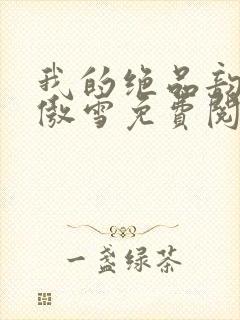 我的绝品
傲雪免费阅
一盏绿茶